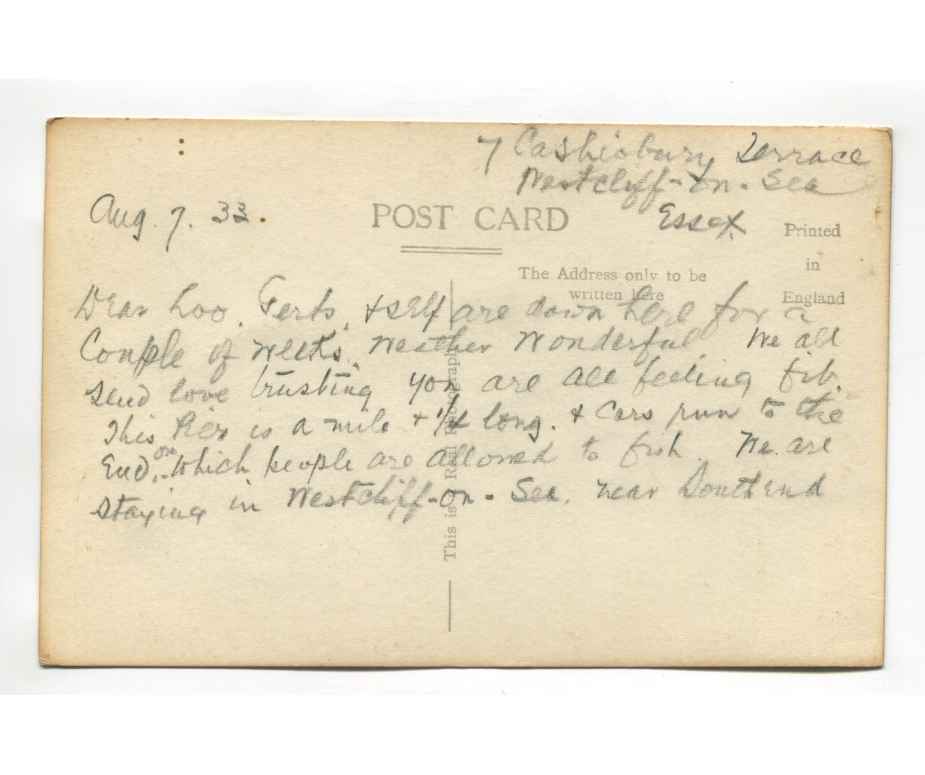 7 Cashiobury Terrace
Westcliff-on-Sea
Essex.
Aug. 7. 33.
POST CARD
Printed
in
England
The Address only to be
written here
Dear Loo, Gerts, & self are down here for a
Couple of weeks. Weather Wonderful. We all
send love trusting you are all feeling fit.
This Pier is a mile & 1/4 long. & Cars run to the
End, on which people are allowed to fish. We are
staying in Westcliff-on-Sea, near Southend
This is a Real Photograph